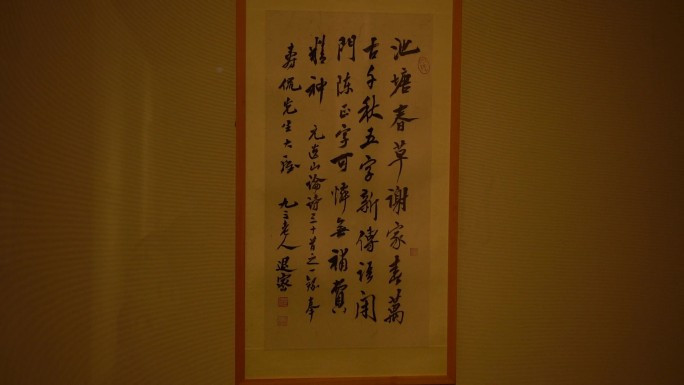 池塘春草謝家春萬
古千秋五字新傳語閉
門陈正字可憐無補費
精神 元遺山論詩三十首之一錄奉
壽侃先生大雅
九三老人退密